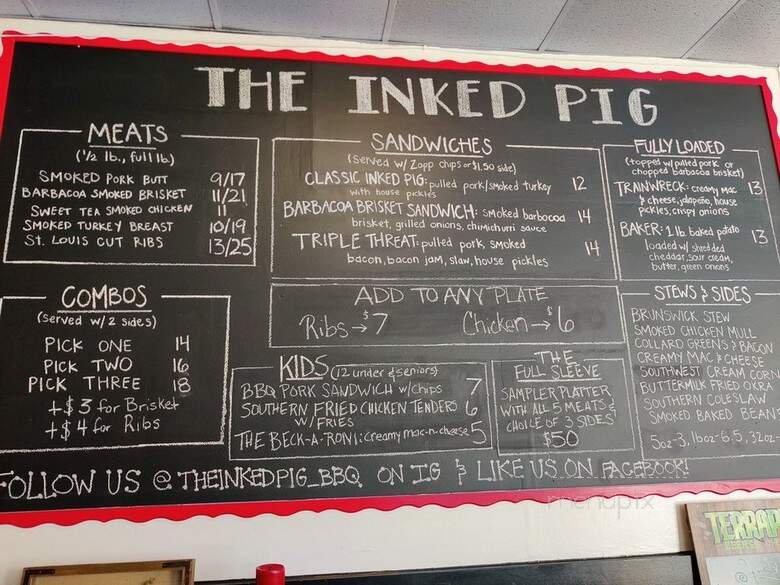 THE INKED PIG
MEATS
(1/2 lb., full lb)
SMOKED PORK BUTT 9/17
BARBACOA SMOKED BRISKET 11/21
SWEET TEA SMOKED CHICKEN 11
SMOKED TURKEY BREAST 10/19
ST. LOUIS CUT RIBS 13/25
COMBOS
(served w/ 2 sides)
PICK ONE 14
PICK TWO 16
PICK THREE 18
+$3 for Brisket
+$4 for Ribs
SANDWICHES
(served w/ Zapp chips or $1.50 side)
CLASSIC INKED PIG: pulled pork/smoked turkey 12
with house pickles
BARBACOA BRISKET SANDWICH: smoked barbocoa 14
brisket, grilled onions, chimichurri sauce
TRIPLE THREAT: pulled pork, smoked 14
bacon, bacon jam, slaw, house pickles
ADD TO ANY PLATE
Ribs→$7 Chicken→$6
KIDS (12 under & seniors)
BBQ PORK SANDWICH w/chips 7
SOUTHERN FRIED CHICKEN TENDERS 6
W/ FRIES
THE BECK-A-RONI: creamy mac-n-cheese 5
THE
FULL SLEEVE
SAMPLER PLATTER
WITH ALL 5 MEATS &
CHOICE OF 3 SIDES
$50
FULLY LOADED
(topped w/ pulled pork or
chopped barbacoa brisket)
TRAINWRECK: creamy mac 13
& cheese, jalapeño, house
pickles, crispy onions
BAKER: 1 lb baked potato 13
loaded w/ shredded
cheddar, sour cream,
butter, green onions
STEWS & SIDES
BRUNSWICK STEW
SMOKED CHICKEN MULL
COLLARD GREENS & BACON
CREAMY MAC & CHEESE
SOUTHWEST CREAM CORN
BUTTERMILK FRIED OKRA
SOUTHERN COLESLAW
SMOKED BAKED BEAN
5oz-3, 16oz-6.5, 32oz-
FOLLOW US @THEINKEDPIG_BBQ ON IG & LIKE US ON FACEBOOK!
menupix
TERRAP